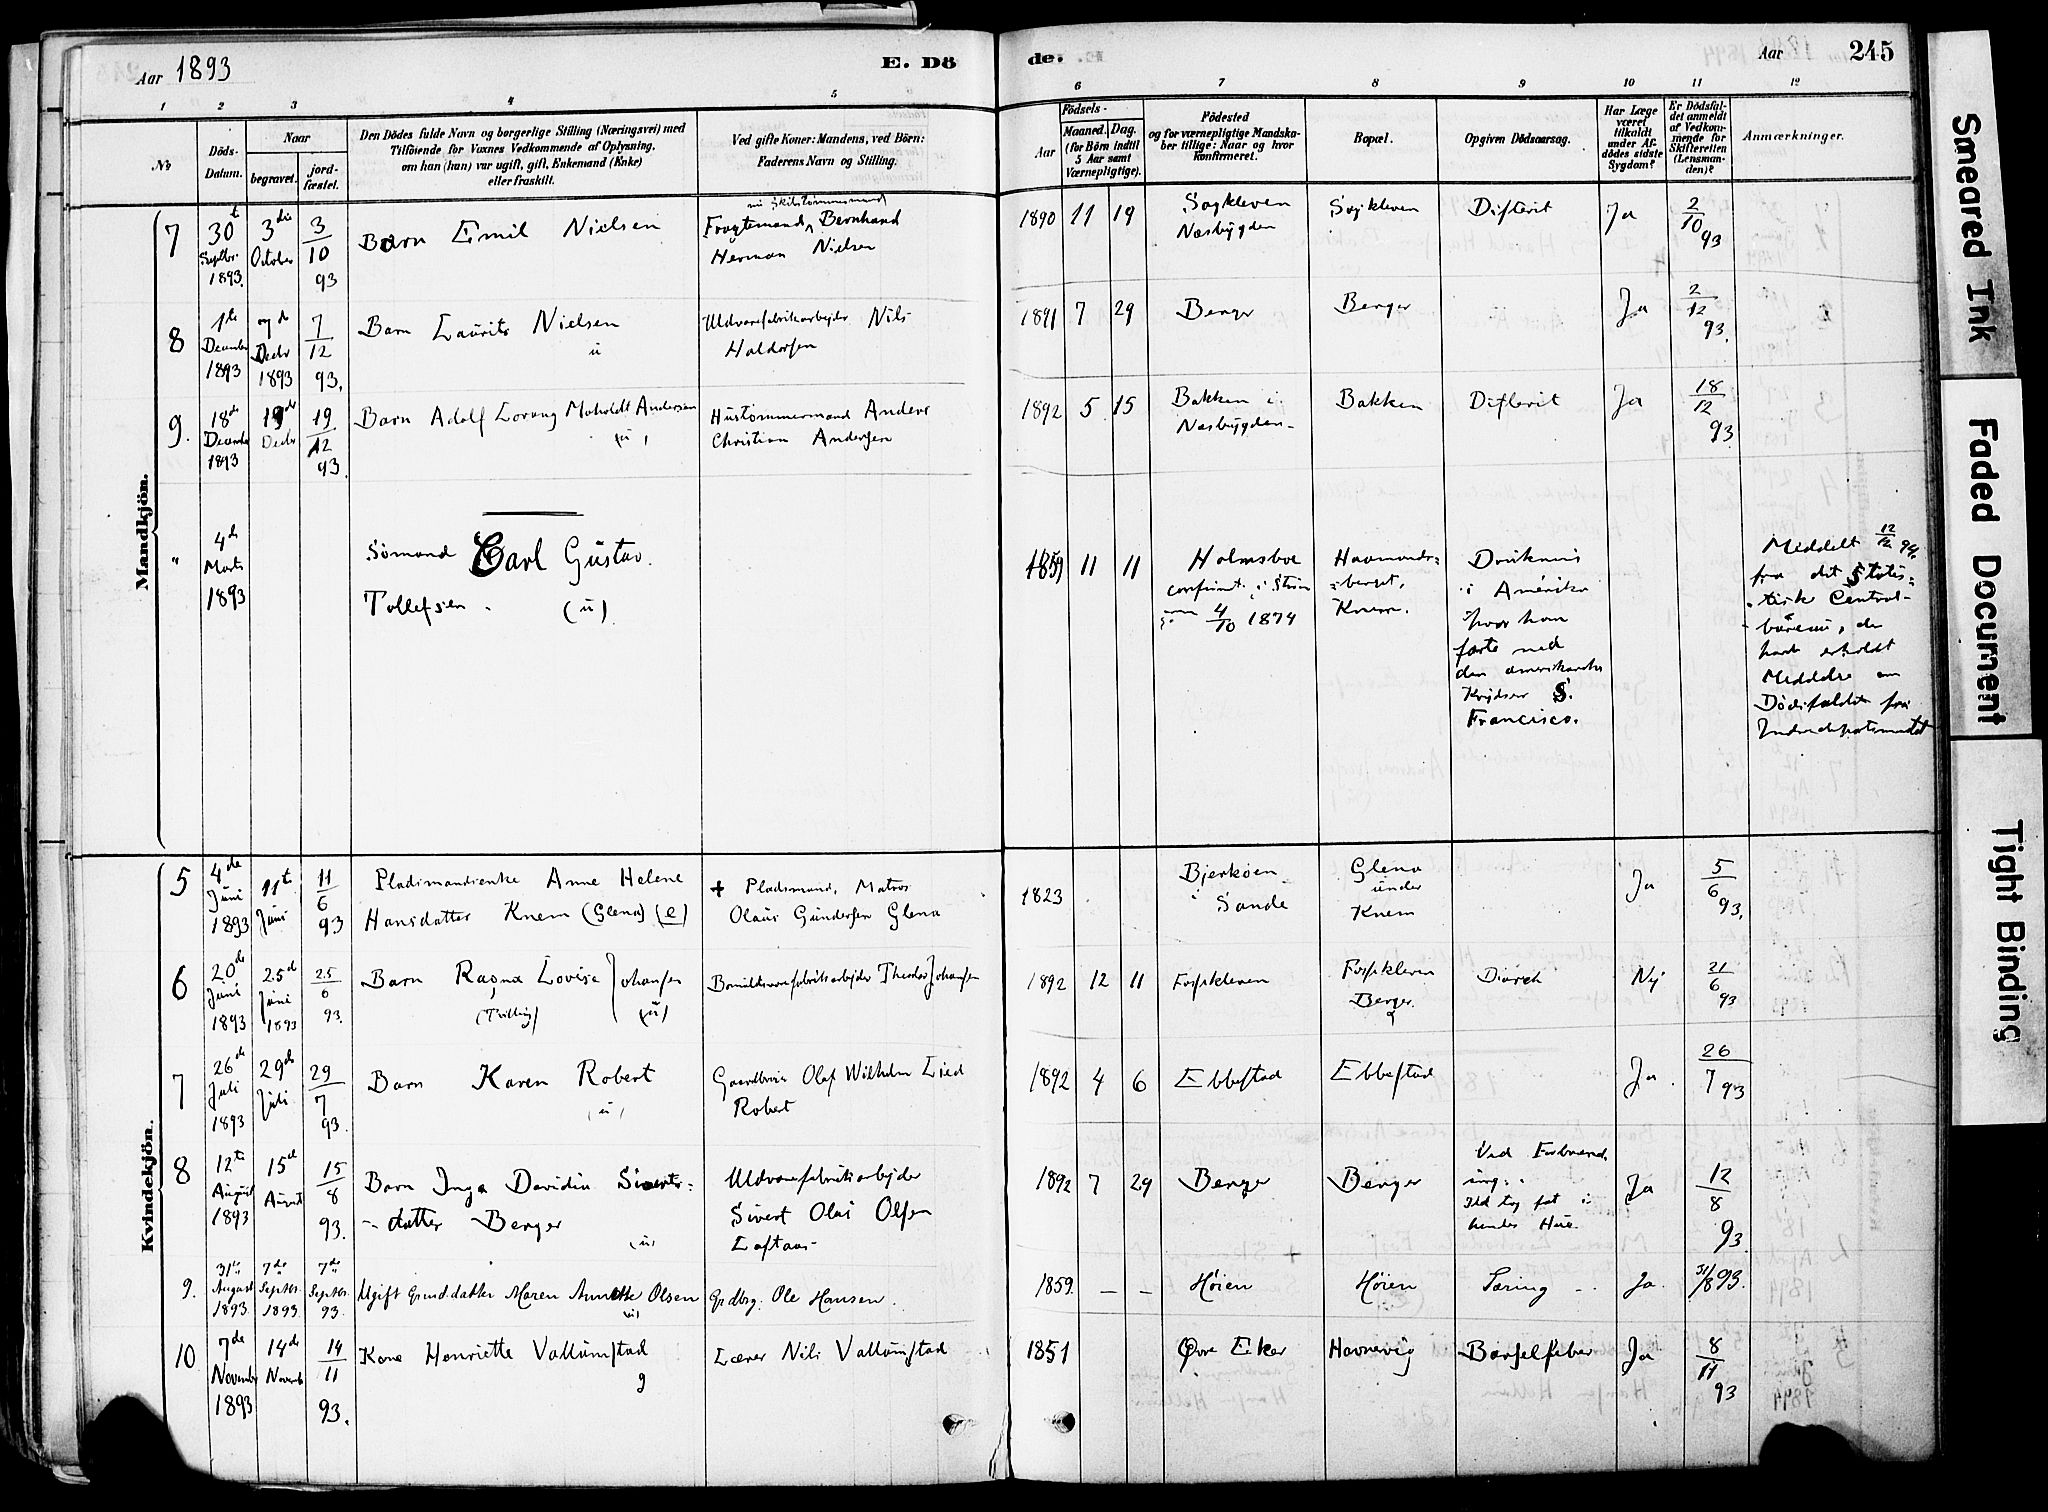 Aar 1893
E. Dö
de.
Aar
245
1 2 3 4 5 6 7 8 9 10 11 12
No
Döds-
Datum.
Naar
begravet.
jord-
fæstet.
Den Dödes fulde Navn og borgerlige Stilling (Næringsvei) med
Tilföiende for Voxnes Vedkommende af Oplysning,
om han (hun) var ugift, gift, Enkemand (Enke)
eller fraskilt.
Ved gifte Koner: Mandens, ved Börn:
Faderens Navn og Stilling.
Födsels-
Aar
Maaned. Dag.
(for Börn indtil
5 Aar samt
Værnepligtige).
Födested
og for værnepligtige Mandska-
ber tillige: Naar og hvor
konfirmeret.
Bopæl.
Opgiven Dödsaarsag.
Har Læge
været
tilkaldt
under Af-
dödes sidste
Sygdom?
Er Dödsfal-
det anmeldt
af Vedkom-
mende for
Skifteretten
(Lensman-
den)?
Anmærkninger.
Mandkjön.
7
30t
Septbr.
1893.
3die
October
3/10
93
Barn Emil Nielsen
nu Skibstømmermand
Fragtemand Bernhard
Herman Nielsen
1890 11 19
Sagkleven
Næsbygden
Sagkleven
Difterit
Ja
2/10 93
8
1te
December
1893
7de
Decbr
1893
7/12
93.
Barn Laurits Nielsen
u
Uldvarefabrikarbejder Nils
Haldorsen
1891 7 29
Berger
Berger
Ja
2/12 93.
9.
18de
December
1893
19de
Decbr
19/12
93.
Barn Adolf Lorang Andersen
(u)
Hustømmermand Anders
Christian Andersen
1892 5 15
Bakken i
Næsbygden
Bakken
Difterit
Ja
18/12
93
"
4de
Marts
1893
Sømand Carl Gustav
Tollefsen. (u)
1859 11 11
Holmsboe
confirmt. i Strøm
4/10 1874
Havmands-
berget,
Knem.
Druknet
i Amerika
hvor han
farte med
den amerikanske
Krydser S.
Francisco.
Meddelt 12/12 94.
fra det Statis-
tisk Central-
bureau, der
havde erholdt
Meddelse om
Dødsfaldet fra
Indredepartementet
Kvindekjön.
5
4de
Juni
1893
11te
Juni
11/6
93
Pladsmandsenke Anne Helene
Hansdatter Knem (Glena) (e)
+ Pladsmand, Matros
Olaus Gundersen Glena
1823
Bjerkøen
i Sande
Glena
under
Knem
Ja
5/6 93.
6
20de
Juni
1893
25d
Juni
1893
25/6
93.
Barn Ragna Lovise Johansen
(Tvilling) (u)
Bomuldsvarefabrikarbejder Theodor Johansen
1892 12 11
Fossekleven
Fossekleven
Berger
Diareh
Nej
21/6
93
7
26de
Juli
1893
29de
Juli
29/7
93.
Barn Karen Robert
(u)
Gaardbruger Olaf Wilhelm Lied
Robert
1892 4 6
Ebbestad
Ebbestad
Ja.
26/7 93
8
12te
August
1893
15d
August
15/8
93.
Barn Inga Davidia Siverts-
datter Berger
(u)
Uldvarefabrikarbejder
Sivert Olai Olsen
Loftaas
1892 7 29
Berger
Berger
Ved Forbrænd-
ing.
Ild tog fat i
hendes Haar.
Ja
12/8
93.
9.
31te
August
1893.
7de
Septbr.
1893.
7de
Septbr.
93.
Ugift Gaarddatter Maren Annette Olsen
(u)
Grdbrg. Ole Hansen.
1859. — —
Høien
Høien
Tæring
Ja.
31/8 93.
10
7de
November
1893
14de
Novemb.
14/11
93.
Kone Henriette Vallumstad
g
Lærer Nils Vallumstad
1851
Øvre Eker
Havnevig
Barselfeber
Ja
8/11
93
Smeared Ink
Faded Document
Tight Binding